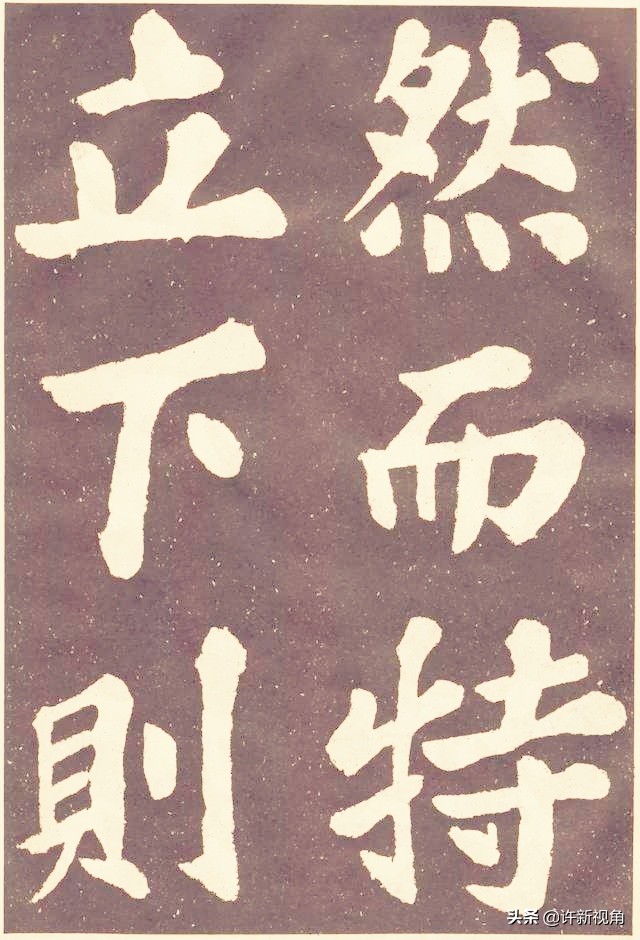 然而特
立下則
头条 @许新视角